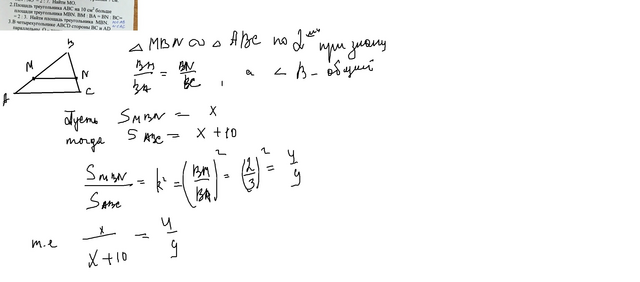 Найти МО.
2.Площадь треугольника ABC на 10 см² больше
площади треугольника MBN. BM : BA = BN : BC=
= 2 : 3. Найти площадь треугольника MBN.
3.В четырехугольнике ABCD стороны BC и AD
B
M
N
A
C
△ MBN ∾ △ ABC по 2 признаку
BM/BA = BN/BC, а ∠ B – общий
Пусть S MBN = x
тогда S ABC = x + 10
S MBN / S ABC = k² = (BM/BA)² = (2/3)² = 4/9
т.е x / x + 10 = 4/9